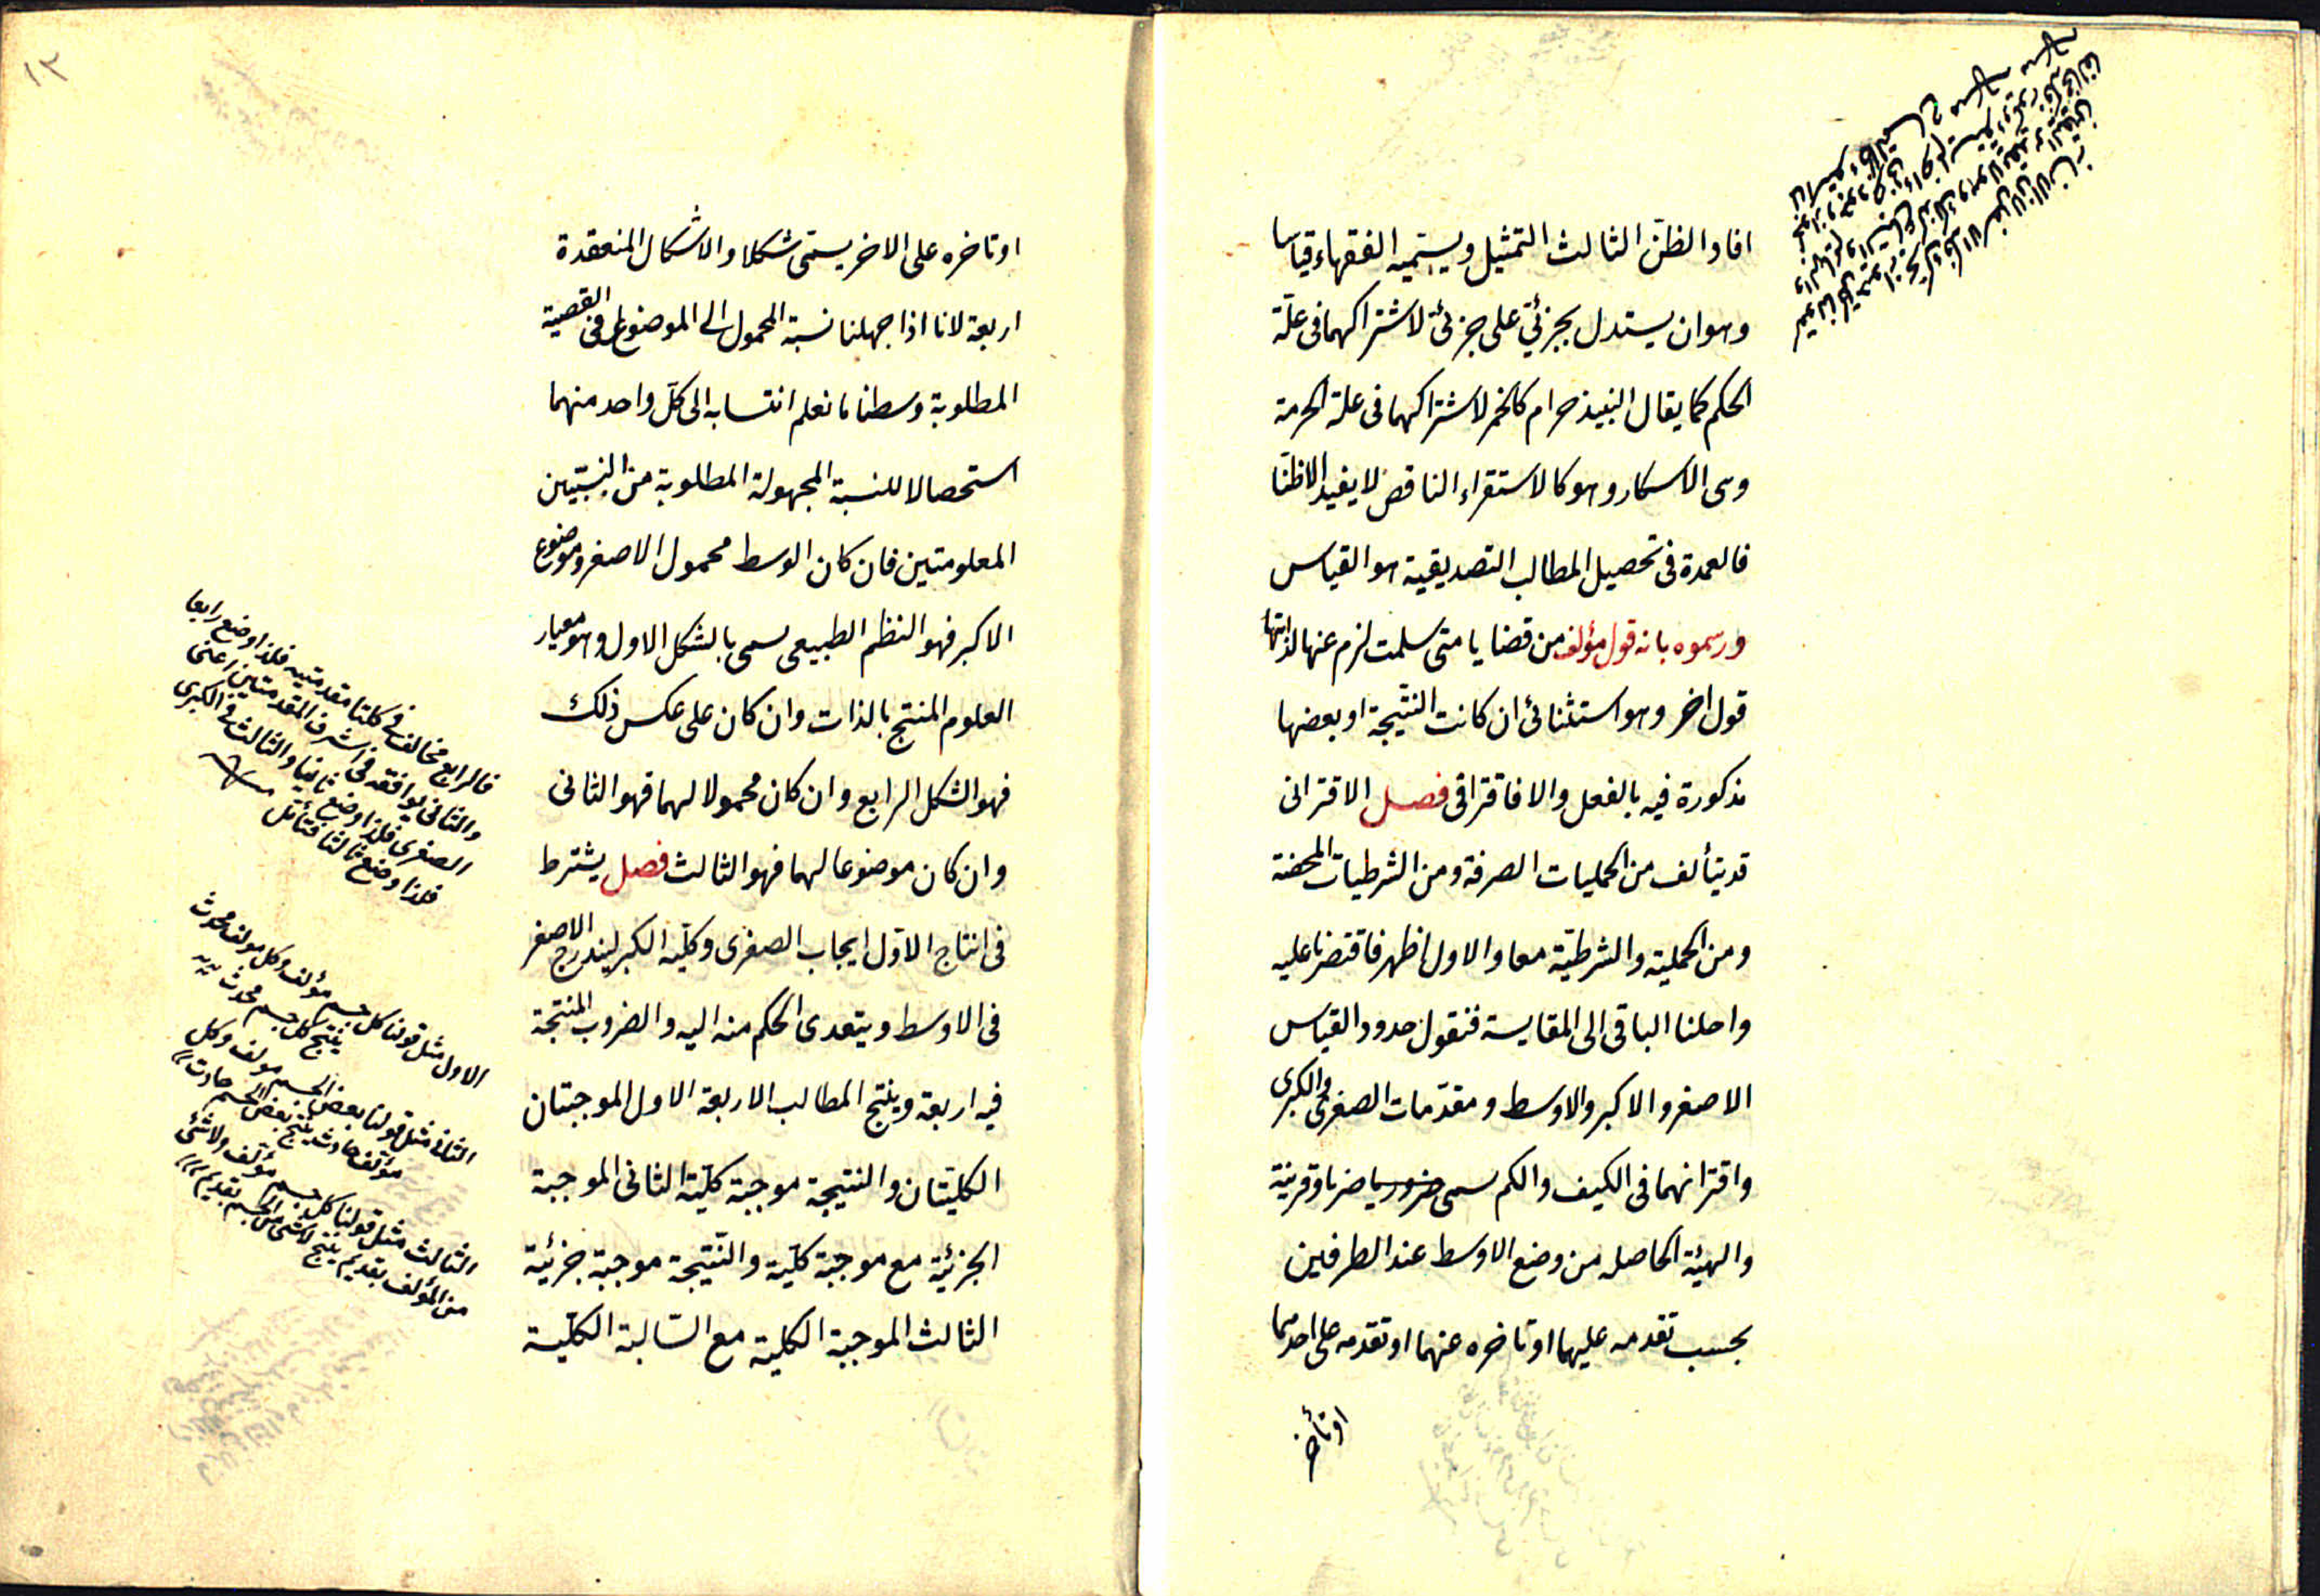 افاد الظن الثالث التمثيل ويسميه الفقهاء قياسا
وهو ان يستدل بجزئي على جزئي لاشتراكهما فى علة
الحكم كما يقال النبيذ حرام كالخمر لاشتراكهما فى علة الحرمة
وهى الاسكار وهو كالاستقراء الناقص لا يفيد الا ظنا
فالعمدة فى تحصيل المطالب التصديقية هو القياس
ورسموه بانه قول مؤلف من قضايا متى سلمت لزم عنها لذاتها
قول اخر وهو استثنائى ان كانت النتيجة او بعضها
مذكورة فيه بالفعل والا فاقترانى فصل الاقترانى
قد يتألف من الحمليات الصرفة ومن الشرطيات المحضة
ومن الحملية والشرطية معا والاول اظهر فاقتصرنا عليه
واحلنا الباقى الى المقايسة فنقول حدود القياس
الاصغر والاكبر والاوسط ومقدمات الصغرى والكبرى
واقترانهما فى الكيف والكم سمى ضربا وقرينة
والهيئة الحاصله من وضع الاوسط عند الطرفين
بحسب تقدمه عليهما او تاخره عنهما او تقدمه على احدهما
او تأخر
١٣
او تاخره على الاخر يسمى شكلا والاشكال المنعقدة
اربعة لانا اذا جهلنا نسبة المحمول الى الموضوع فى القضية
المطلوبة وسطنا ما نعلم انتسابه الى كل واحد منهما
استحصالا للنسبة المجهولة المطلوبة من النسبتين
المعلومتين فان كان الوسط محمول الاصغر وموضوع
الاكبر فهو النظم الطبيعى سمى بالشكل الاول وهو معيار
العلوم المنتج بالذات وان كان على عكس ذلك
فهو الشكل الرابع وان كان محمولا لهما فهو الثانى
وان كان موضوعا لهما فهو الثالث فصل يشترط
فى انتاج الاول ايجاب الصغرى وكلية الكبر ليندرج الاصغر
فى الاوسط ويتعدى الحكم منه اليه والضروب المنتجة
فيه اربعة وينتج المطالب الاربعة الاول الموجبتان
الكليتان والنتيجة موجبة كلية الثانى الموجبة
الجزئية مع موجبة كلية والنتيجة موجبة جزئية
الثالث الموجبة الكلية مع السالبة الكلية
فالرابع مخالف فى كلتا مقدمتيه فلذا وضع رابعا
والثانى يوافقه فى اشرف المقدمتين اعنى
الصغرى فلذا وضع ثانيا والثالث فى الكبرى
فلذا وضع ثالثا فتأمل
الاول مثل قولنا كل جسم مؤلف وكل مولف محدث
ينتج كل جسم محدث
الثانى مثل قولنا بعض الجسم مولف وكل
مؤلف حادث ينتج بعض الجسم حادث
الثالث مثل قولنا كل جسم مؤلف ولا شئ
من المؤلف بقديم ينتج لا شئ من الجسم بقديم